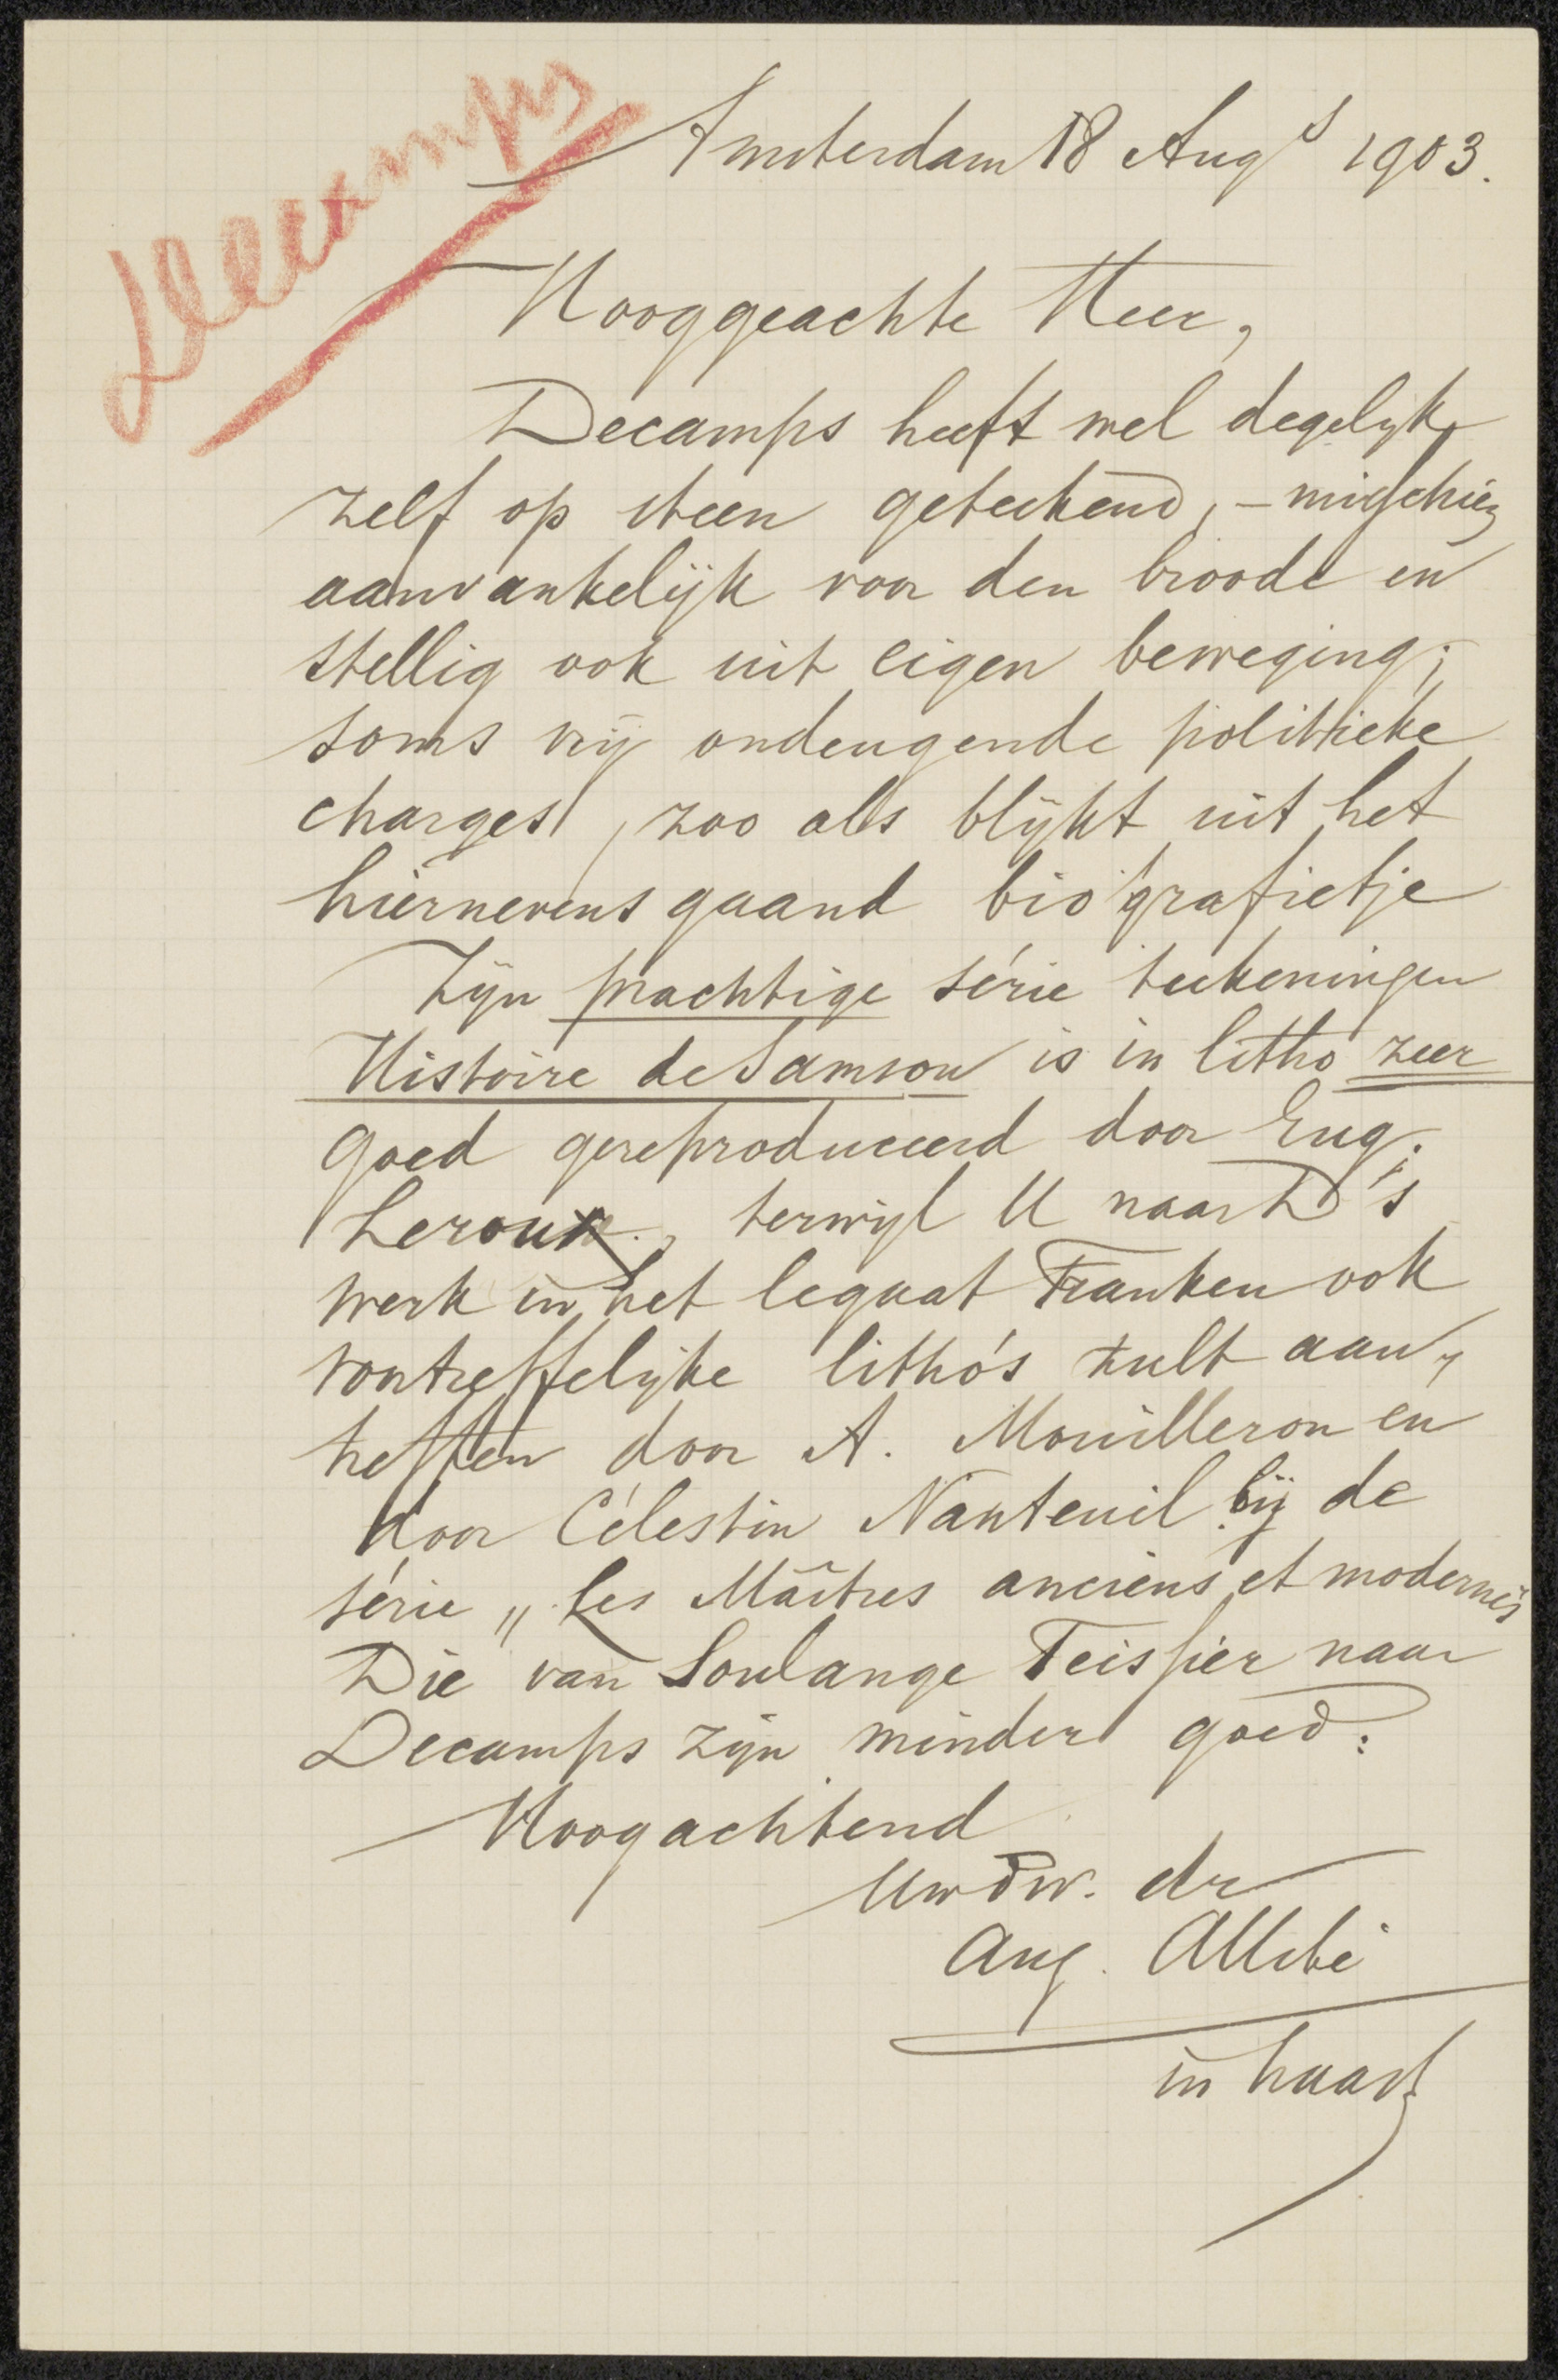 Decamps
Amsterdam 18 Augs 1903.
Hooggeachte Heer,
Decamps heeft wel degelijk
zelf op steen geteekend, – misschien
aanvankelijk voor den broode en
stellig ook uit eigen beweging;
soms vrij ondeugende politieke
charges, zoo als blijkt uit het
hiernevens gaand biografietje
Zijn prachtige série teekeningen
Histoire de Samson is in litho zeer
goed gereproduceerd door Eug.
Leroux, terwijl U naar D's
werk in het legaat Franken ook
voortreffelijke litho's zult aan„
treffen door A. Mouilleron en
door Célestin Nanteuil bij de
série „Les Maîtres anciens et modernes
Die van Soulange Teissier naar
Decamps zijn minder goed.
Hoogachtend
Uw dw. dr
Aug. Allebé
in haast